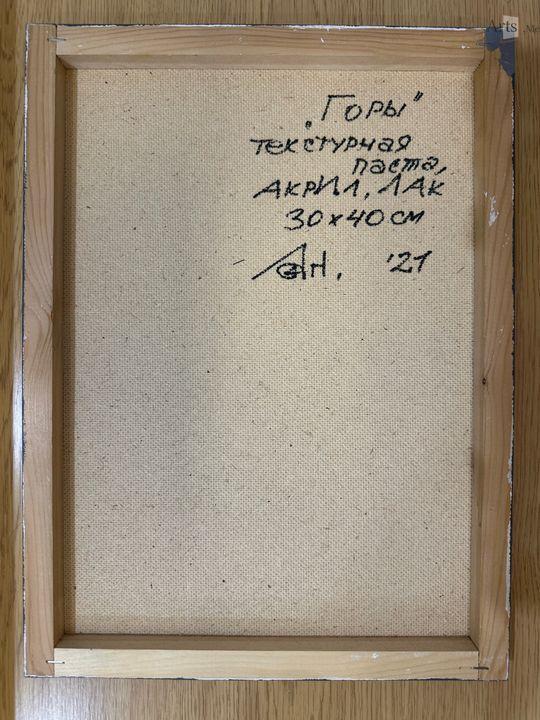 „Горы"
текстурная
паста,
Акрил, Лак
30х40см
'21
Arts